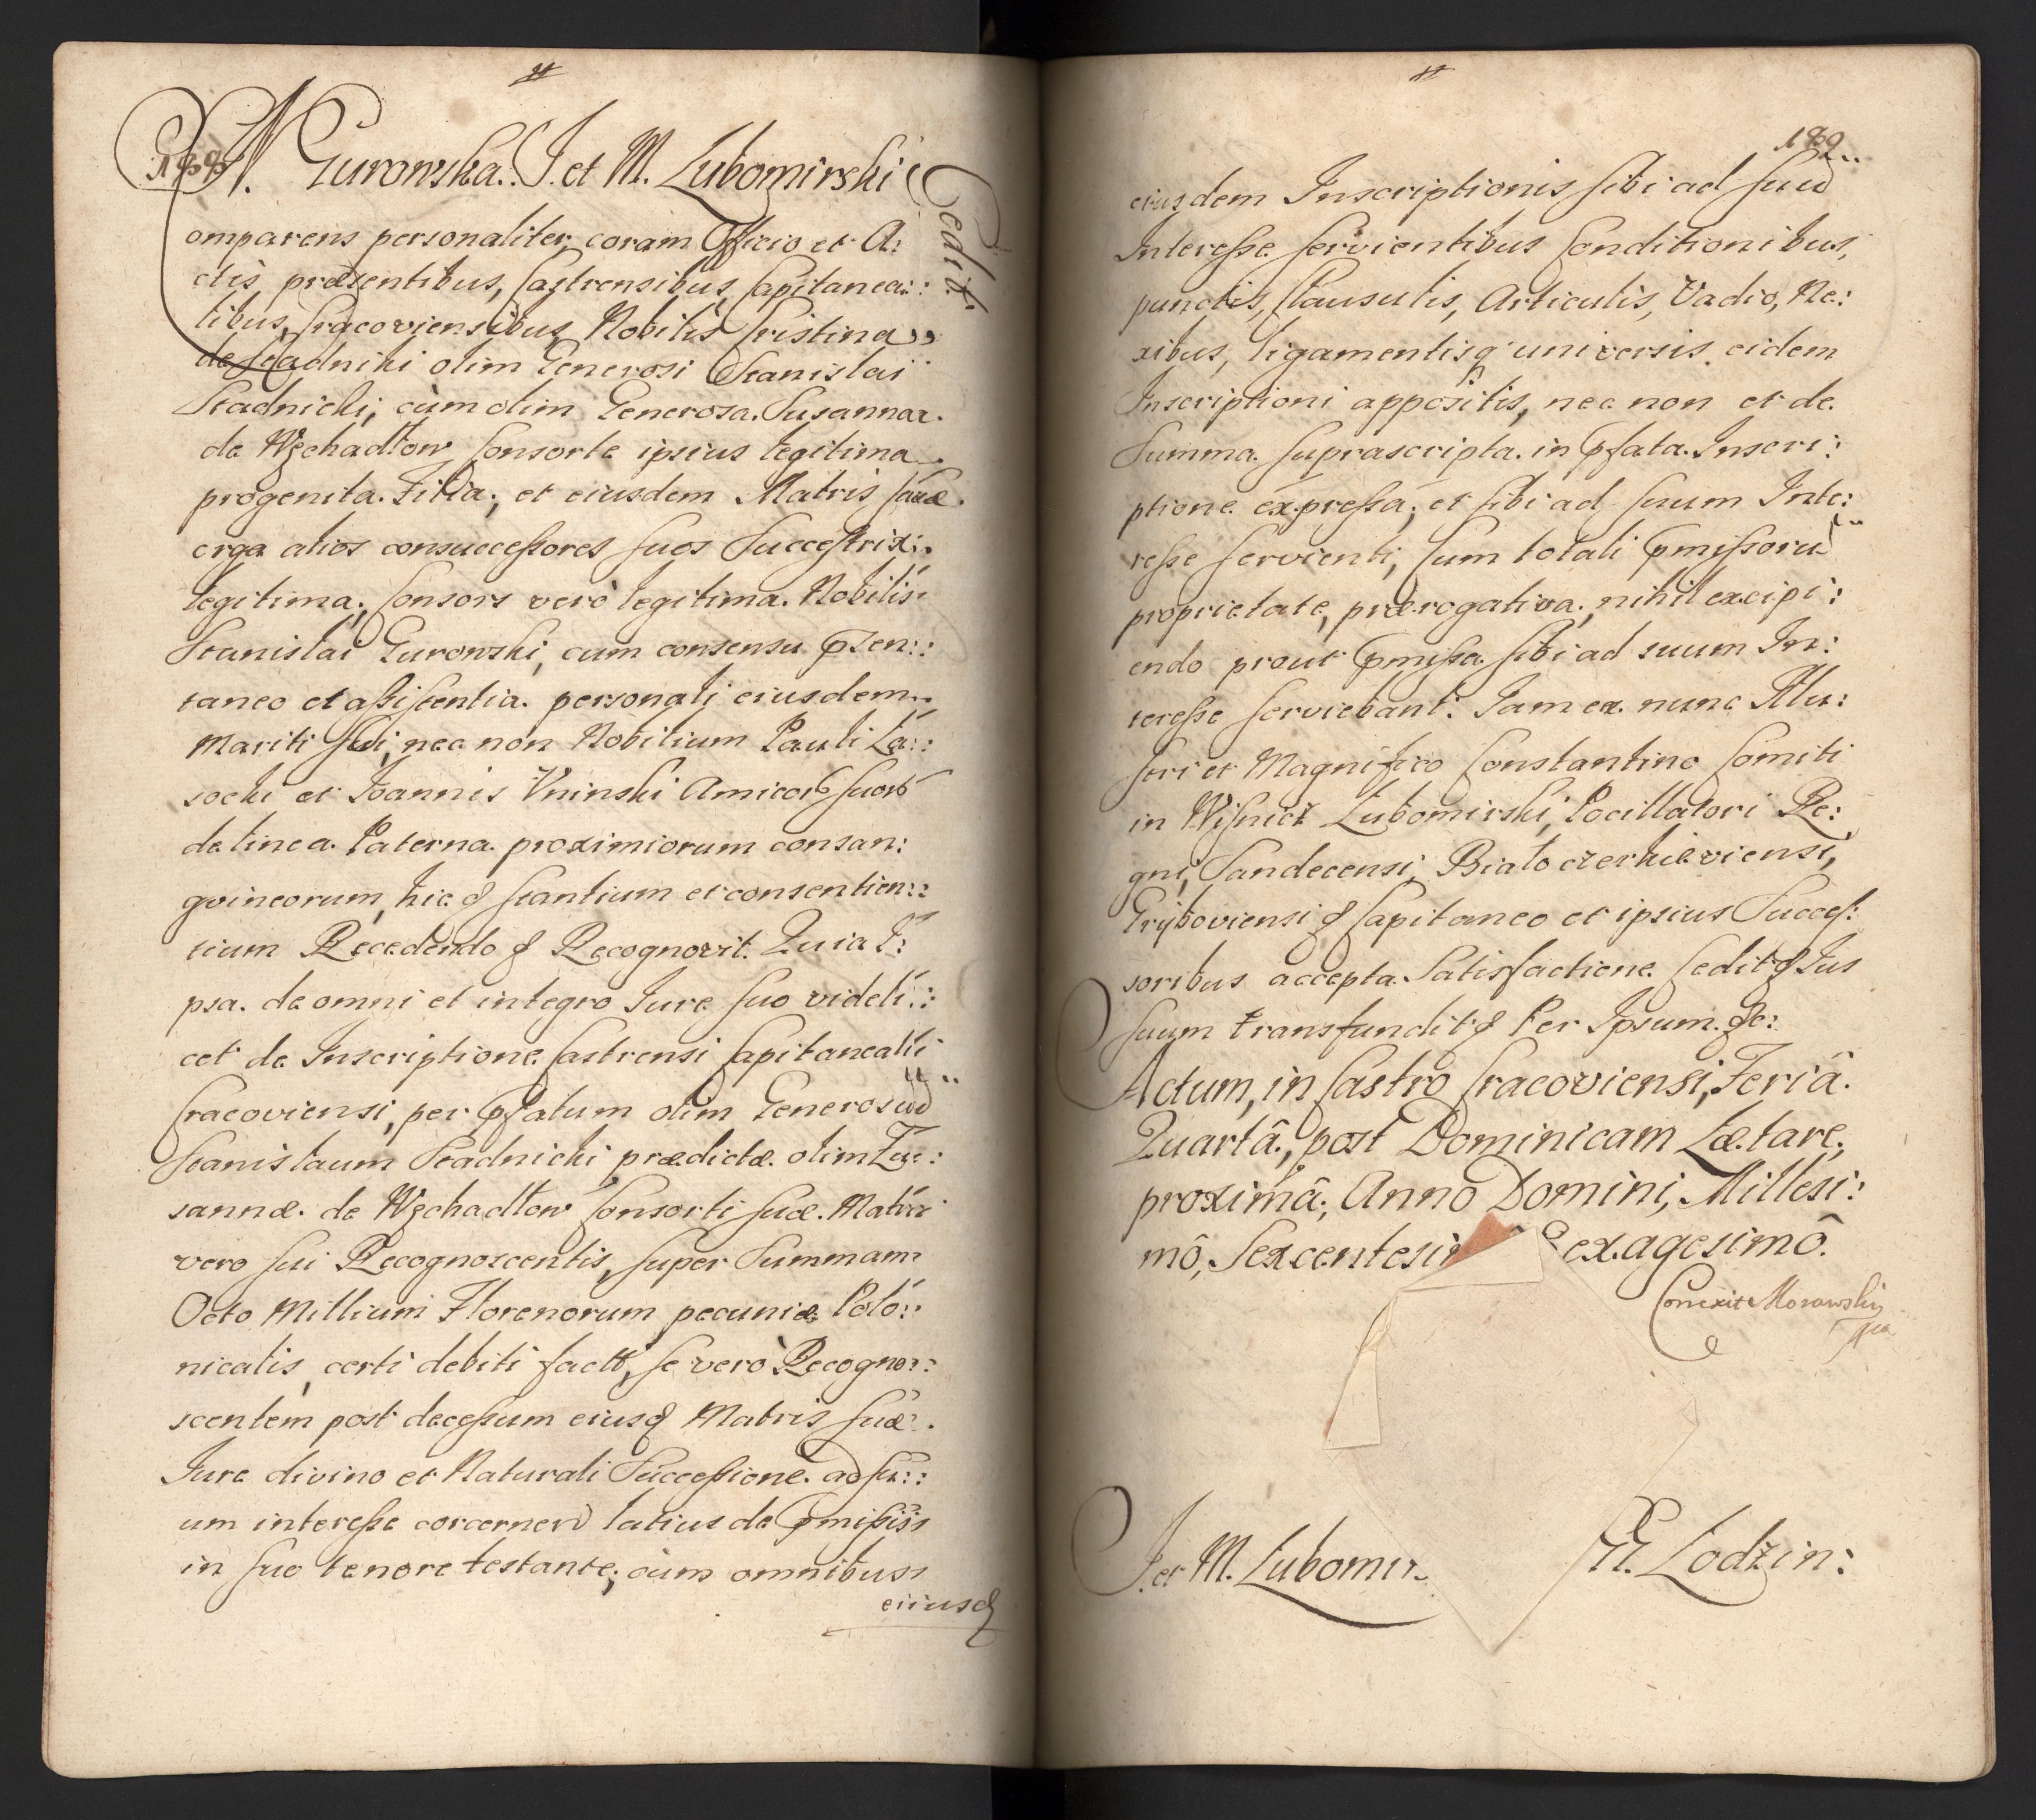 188
N. Gurowska. I. et M. Lubomirski
Cedit.
omparens personaliter, coram Officio et A:
ctis præsentibus, Castrensibus, Capitanea::
libus, Cracoviensibus Nobilis Cristina
de Stadniki olim Generosi Stanislai
Stadnicki, cùm olim Generosa. Susanna
de Wzchadłow Consorte ipsius legitima
progenita. Filia; et eiusdem Matris suæ.
erga alios consuccessores suos Succestrix:
legitima; Consors verò legitima. Nobilis
Stanislai Gurowski, cum consensu pꝛsen::
taneo et assistentia. personali eiusdem
Mariti sui, nec non Nobilium Pauli La::
socki et Ioannis Vninski Amicorꝝ suorꝝ
de linea. Paterna. proximiorum consan:
gvineorum, hic & stantium et consentien::
tium Recedendo & Recognovit. Quia I:
psa. de omni et integro Iure suo videli::
cet de Inscriptione Castrensi Capitaneali
Cracoviensi, per pꝛfatum olim Generosuɯ̃
Stanislaum Stadnicki prædictæ. olim Zu::
sannæ. de Wzchadłow Consorti suæ. Matri
vero sui Recognoscentis, super Summam
Octo Millium Florenorum pecuniæ Polo::
nicalis, certi debiti fact, se verò Recogno::
scentem post decessum eiusd Matris suæ.
Iure divino et Naturali Successione. ad su::
um interesse concernen latius de pꝛmissis
in suo tenore testante; cùm omnibus
eiiusd
189
eiusdem Inscriptionis sibi ad suũ
Interesse servientibus Conditionibus,
punctis, Clausulis, Articulis, Vadio, Ne:
xibus, ligamentisq universis eidem
Inscriptioni appositis, nec non et de
Summa. suprascripta. in pꝛfata. Inscri:
ptione expressa; et sibi ad suum Inte:
resse servienti, Cum totali pꝛmissoruɯ̃
proprietate, prærogativa, nihil excipi:
endo prout pꝛmissa sibi ad suum In:
teresse serviebant. Iam ex nunc Illu:
stri et Magnifico Constantino Comiti
in Wisnicz Lubomirski, Pocillatori Re:
gni, Sandecensi, Białoczerkieviensi,
Grijboviensi & Capitaneo et ipsius Succes:
soribus accepta. Satisfactione Cedit & Ius
suum transfundit & Per Ipsum. &c:
Actum, in Castro Cracoviensi, Feriâ.
Quartâ, post Dominicam Lætare,
proximâ; Anno Domini, Millesi:
mô, Sexcentesi exagesimô.
Correxit Morawski
mp
I. et M. Lubomir.
N. Lodzin: